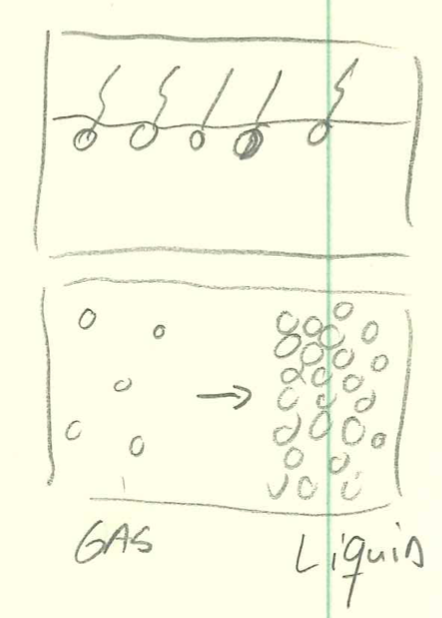 GAS
Liquid